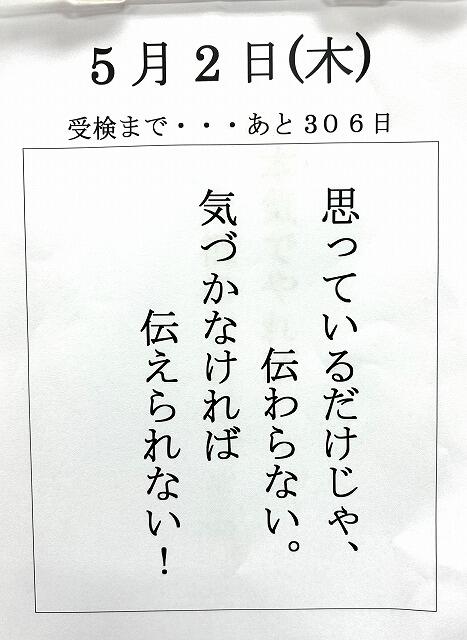 5月2日(木)
受検まで・・・あと306日
思っているだけじゃ、
伝わらない。
気づかなければ
伝えられない！